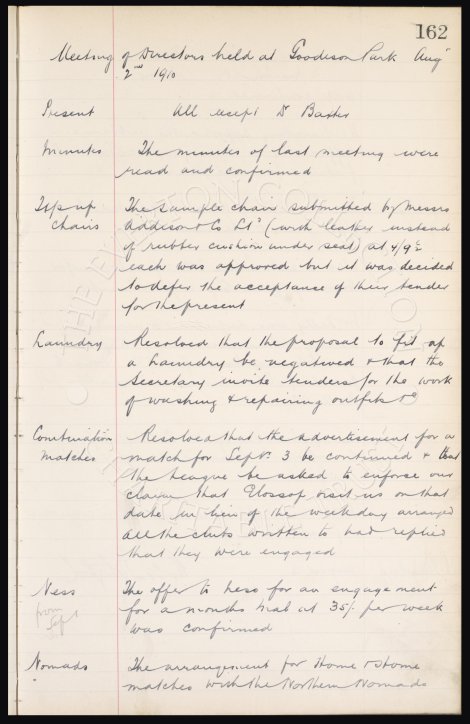 162
Meeting of Directors held at Goodison Park Aug
2nd 1910
Present All except Dr Baxter
Minutes The minutes of last meeting were
read and confirmed
Tip up The sample chair submitted by Messrs
chairs Addison & Co Ltd (with leather instead
of rubber cushion under seat) at 4/9½
each was approved but it was decided
to defer the acceptance of their tender
for the present
Laundry Resolved that the proposal to fit up
a Laundry be negatived & that the
Secretary invite tenders for the work
of washing & repairing outfits &c
Combination Resolved that the advertisement for a
matches match for Septr. 3 be continued & that
the League be asked to enforce our
claim that Glossop visit us on that
date in lieu of the weekday arranged
All the clubs written to had replied
that they were engaged
Ness The offer to Ness for an engagement
from for a months trial at 35/- per week
Sept was confirmed
Nomads The arrangement for Home & Home
matches with the Northern Nomads